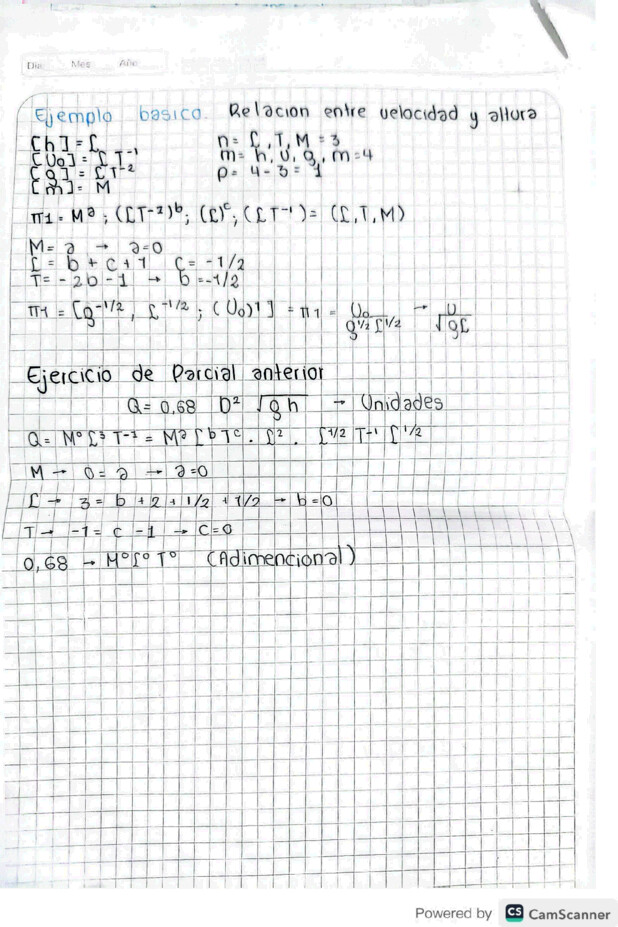 Dia Mes Año
Ejemplo basico. Relacion entre velocidad y altura
[h] = L n = L, T, M = 3
[Uo] = L T⁻¹ m = h, U, g, m = 4
[g] = L T⁻² p = 4 - 3 = 1
[m] = M
π1 = Mᵃ ; (L T⁻²)ᵇ ; (L)ᶜ ; (L T⁻¹) = (L, T, M)
M = a → a = 0
L = b + c + 1 c = -1/2
T = -2b - 1 → b = -1/2
π1 = [g⁻¹/², L⁻¹/² ; (Uo)¹] = π1 = Uo / g¹/² L¹/² → U / √gL
Ejercicio de Parcial anterior
Q = 0,68 D² √gh → Unidades
Q = M⁰ L³ T⁻¹ = Mᵃ Lᵇ Tᶜ . L² . L¹/² T⁻¹ L¹/²
M → 0 = a → a = 0
L → 3 = b + 2 + 1/2 + 1/2 → b = 0
T → -1 = c - 1 → c = 0
0,68 → M⁰ L⁰ T⁰ (Adimencional)
Powered by CS CamScanner